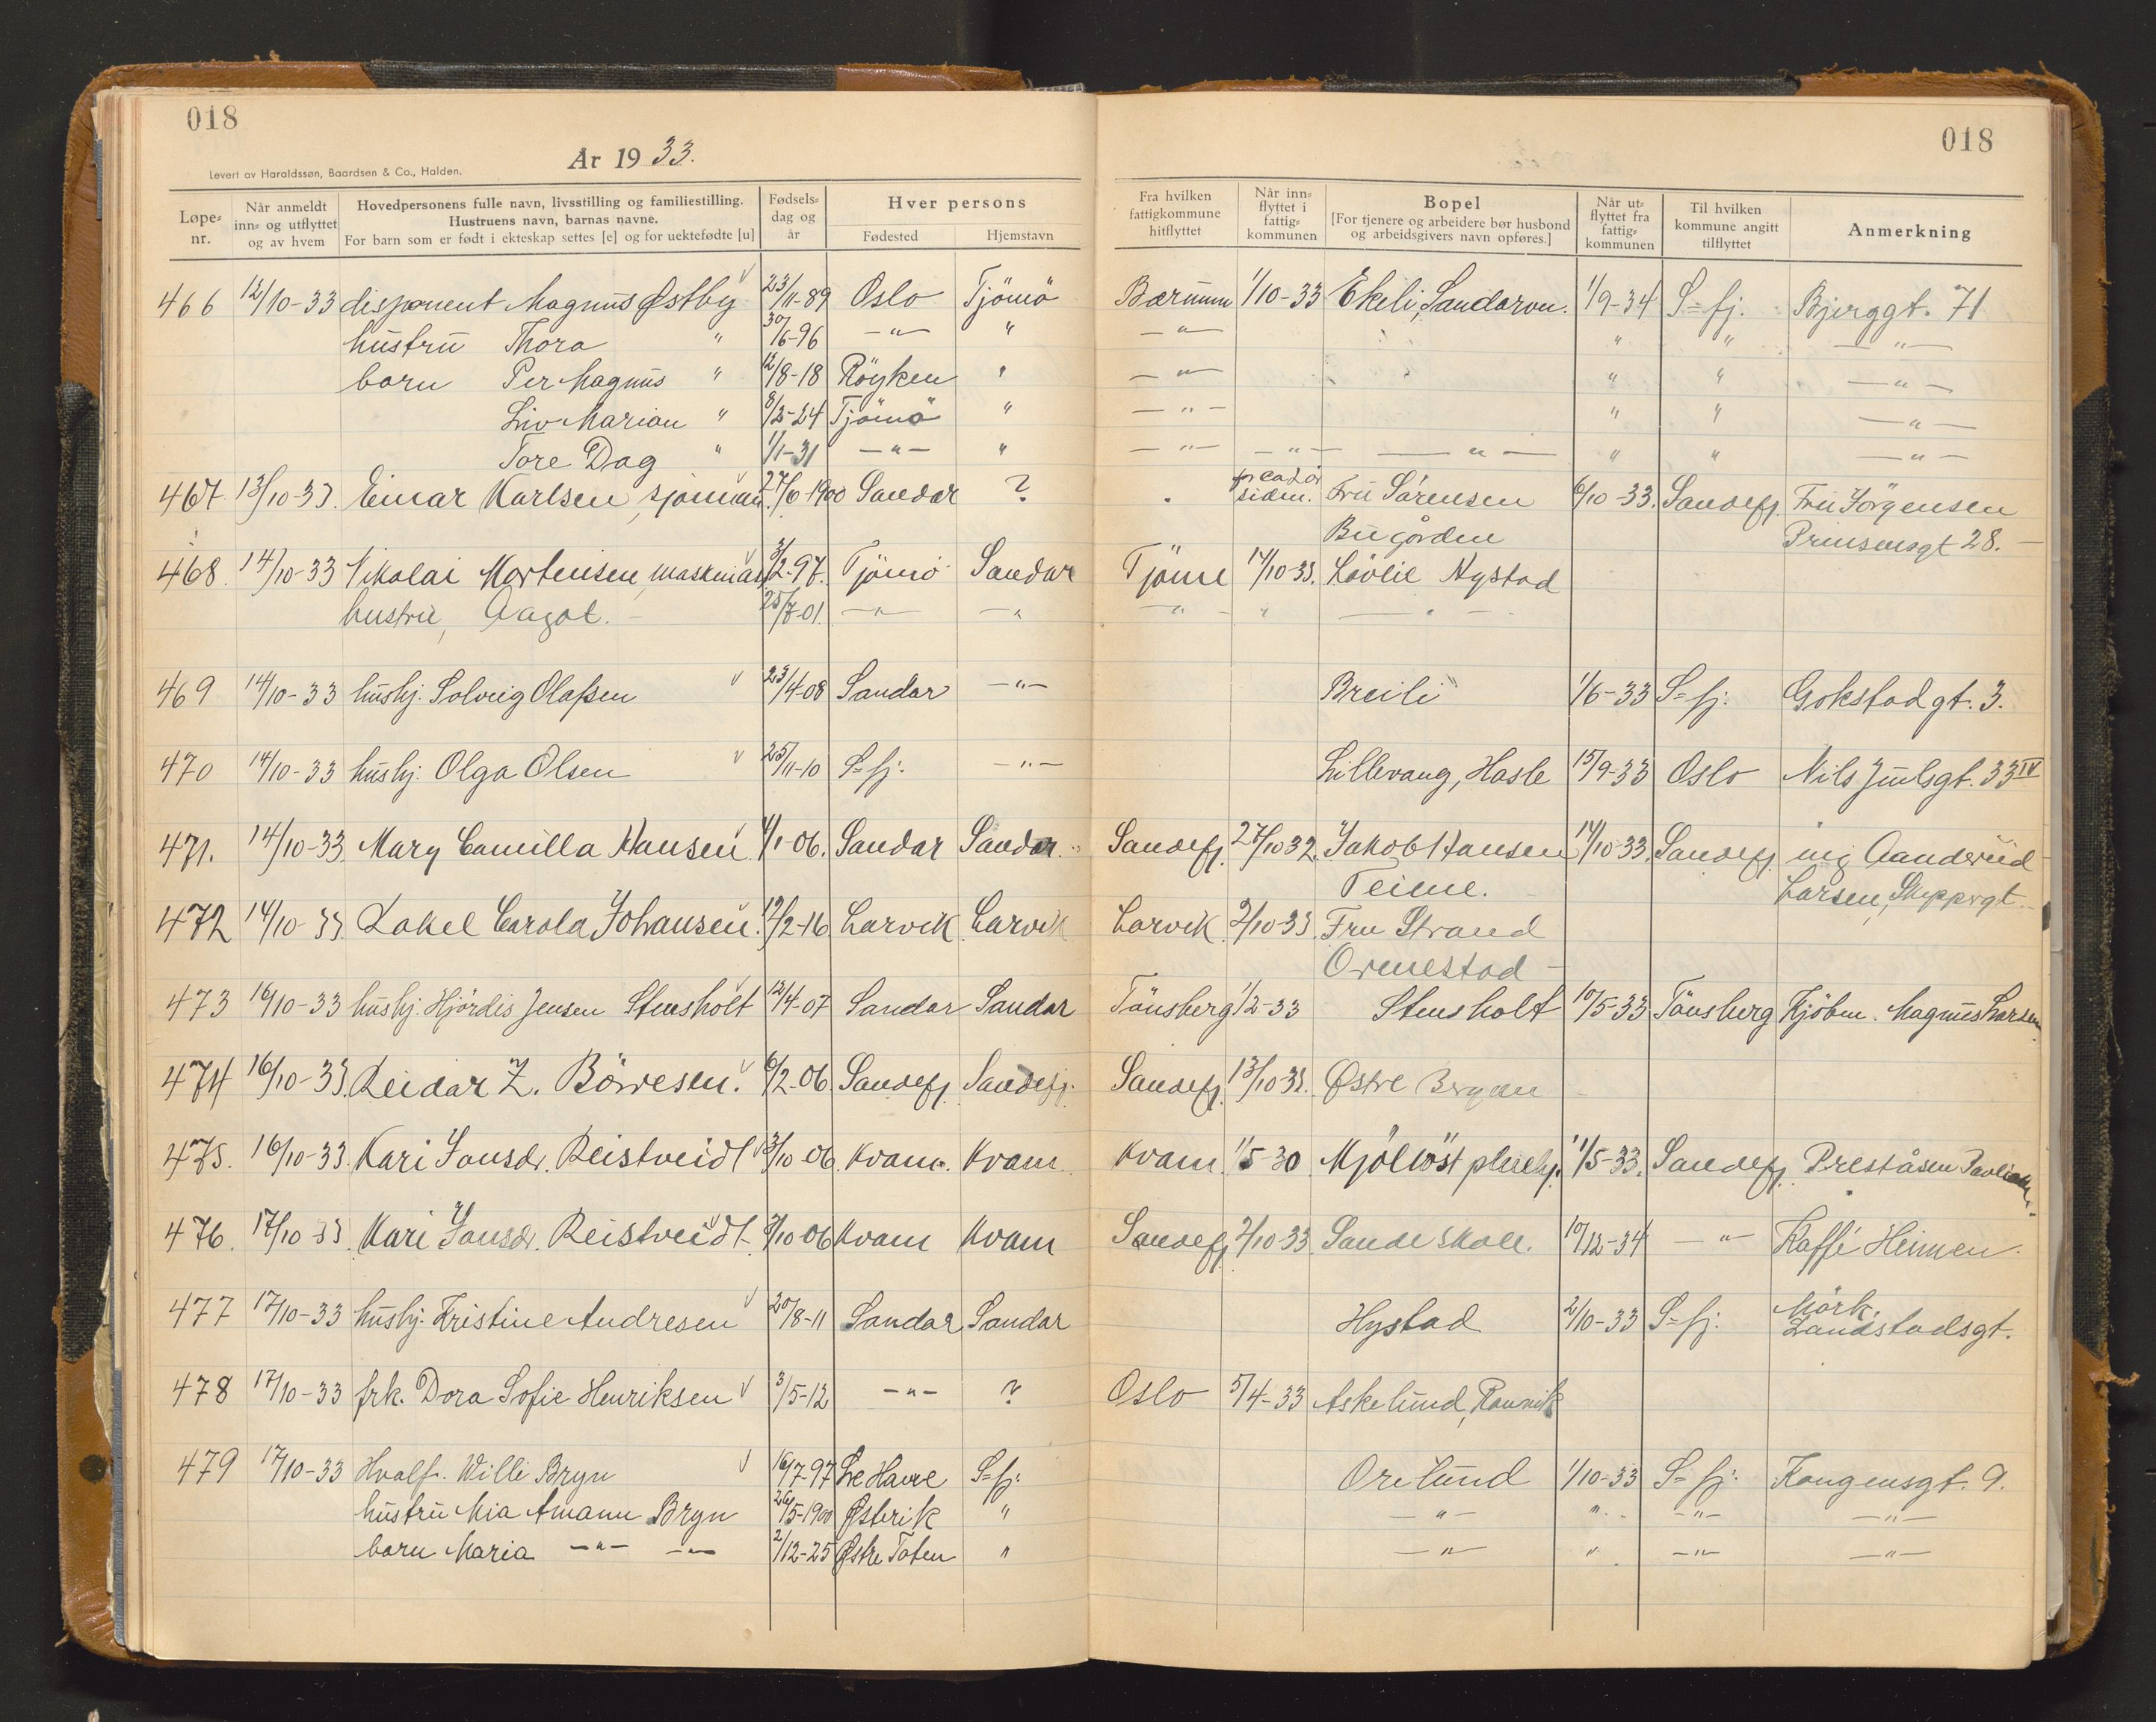 018
År 19 33.
Levert av Haraldssøn, Baardsen & Co., Halden.
018
Løpe-nr. | Når anmeldt inn- og utflyttet og av hvem | Hovedpersonens fulle navn, livsstilling og familiestilling. Hustruens navn, barnas navne. For barn som er født i ekteskap settes [e] og for uektefødte [u] | Fødsels-dag og år | Hver persons Fødested | Hjemstavn | Fra hvilken fattigkommune hitflyttet | Når inn-flyttet i fattig-kommunen | Bopel [For tjenere og arbeidere bør husbond og arbeidsgivers navn opføres.] | Når ut-flyttet fra fattig-kommunen | Til hvilken kommune angitt tilflyttet | Anmerkning
466 12/10-33 disponent Magnus Østby 23/11-89 Oslo Tjömö Bærum 1/10-33 Ekeli, Sandarvn. 1/9-34 S=fj. Bjerggt. 71
hustru Thora " 30/6-96 -"- " -"- " " -"-
barn Per Magnus " 12/8-18 Röyken " -"- " " -"-
Liv Marian " 8/2-24 Tjömö " -"- " " -"-
Tore Dag " 1/1-31 -"- " -"- -"- -"- " " -"-
467 13/10-33. Einar Karlsen, sjömann. 27/6-1900 Sandar ? sidn. Fru Sörensen 6/10-33. Sandefj. Fru Jörgensen
Bugården Prinsensgt 28.
468. 14/10-33 Nikolai Mortensen, 3/2-97. Tjömö Sandar Tjöme 14/10-33. Lövlie Nystad
hustru, Aagot. 25/7-01. -"- -"- -"- " -"-
469 14/10-33 hushj. Solveig Olafsen 23/4-08 Sandar -"- Breili 1/6-33 S=fj. Gokstadgt. 3.
470 14/10-33 hushj. Olga Olsen 25/11-10 S=fj. -"- Lillevang, Hasle 15/9-33 Oslo Nils Juulsgt. 33 IV
471. 14/10-33 Mary Camilla Hansen 4/1-06. Sandar Sandar Sandefj. 27/10 32. Jakob Hansen 14/10-33. Sandefj. ing Aanderud
Teime. Larsen, Skippergt.
472 14/10-33. Rakel Carola Johansen. 12/2-16 Larvik Larvik Larvik 2/10-33. Fru Strand
Ormestad
473 16/10-33 hushj. Hjördis Jensen Stensholt 12/4-07 Sandar Sandar Tönsberg 1/2-33 Stensholt 10/5-33 Tönsberg Kjöbm. Magnus Larsen
474 16/10-33. Reidar Z. Börresen. 6/2-06 Sandefj. Sandefj. Sandefj. 13/10 33. Østre Bergan
475. 16/10-33. Kari Jonsdr. Reistveidt 3/10-06. Kvam. Kvam. Kvam. 1/5-30 Mjölöst pleiehj. 1/5-33. Sandefj. Preståsen
476. 17/10 33. Kari Jonsdr. Reistveidt 3/10 06 Kvam Kvam Sandefj. 2/10 33. Sande Skole. 10/12-34 -"- Kaffé Heimen.
477 17/10-33 hushj. Kristine Andresen 20/8-11 Sandar Sandar Hystad 2/10-33 S=fj. Mörk.
Landstadsgt.
478 17/10-33 frk. Dora Sofie Henriksen 3/5-12 -"- ? Oslo 5/4-33 Askelund, Ranvik
479 17/10-33 Hvalf. Willi Bryn 16/7-97 Le Havre S=fj. Orelund 1/10-33 S=fj. Kongensgt. 9.
hustru Mia Amann Bryn 26/5-1900 Østerik " -"- " -"- -"-
barn Maria -"- -"- 2/12-25 Østre Toten " -"- " -"- -"-